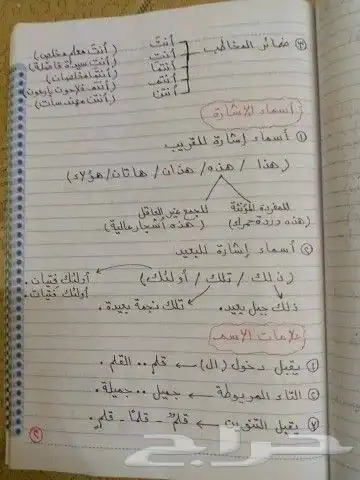 ③ ضمائر المخاطب
أنتَ (أنتَ معلم مخلص)
أنتِ (أنتِ سيدة فاضلة)
أنتما (أنتما مخلصان)
أنتم (أنتم فلاحون بارعون)
أنتن (أنتن مهندسات)
أسماء الإشارة
① أسماء إشارة للقريب
(هذا / هذه / هذان / هاتان / هؤلاء)
للمفردة المؤنثة للجمع غير العاقل
(هذه وردة حمراء) (هذه أشجار عالية)
② أسماء إشارة للبعيد
(ذلك / تلك / أولئك) أولئك فتيان.
أولئك فتيات.
ذلك جبل بعيد. تلك نجمة بعيدة.
علامات الاسم
① يقبل دخول (ال) ← قلم .. القلم.
② التاء المربوطة ← جميل .. جميلة.
③ يقبل التنوين ← قلمٌ - قلمًا - قلمٍ.
حراج